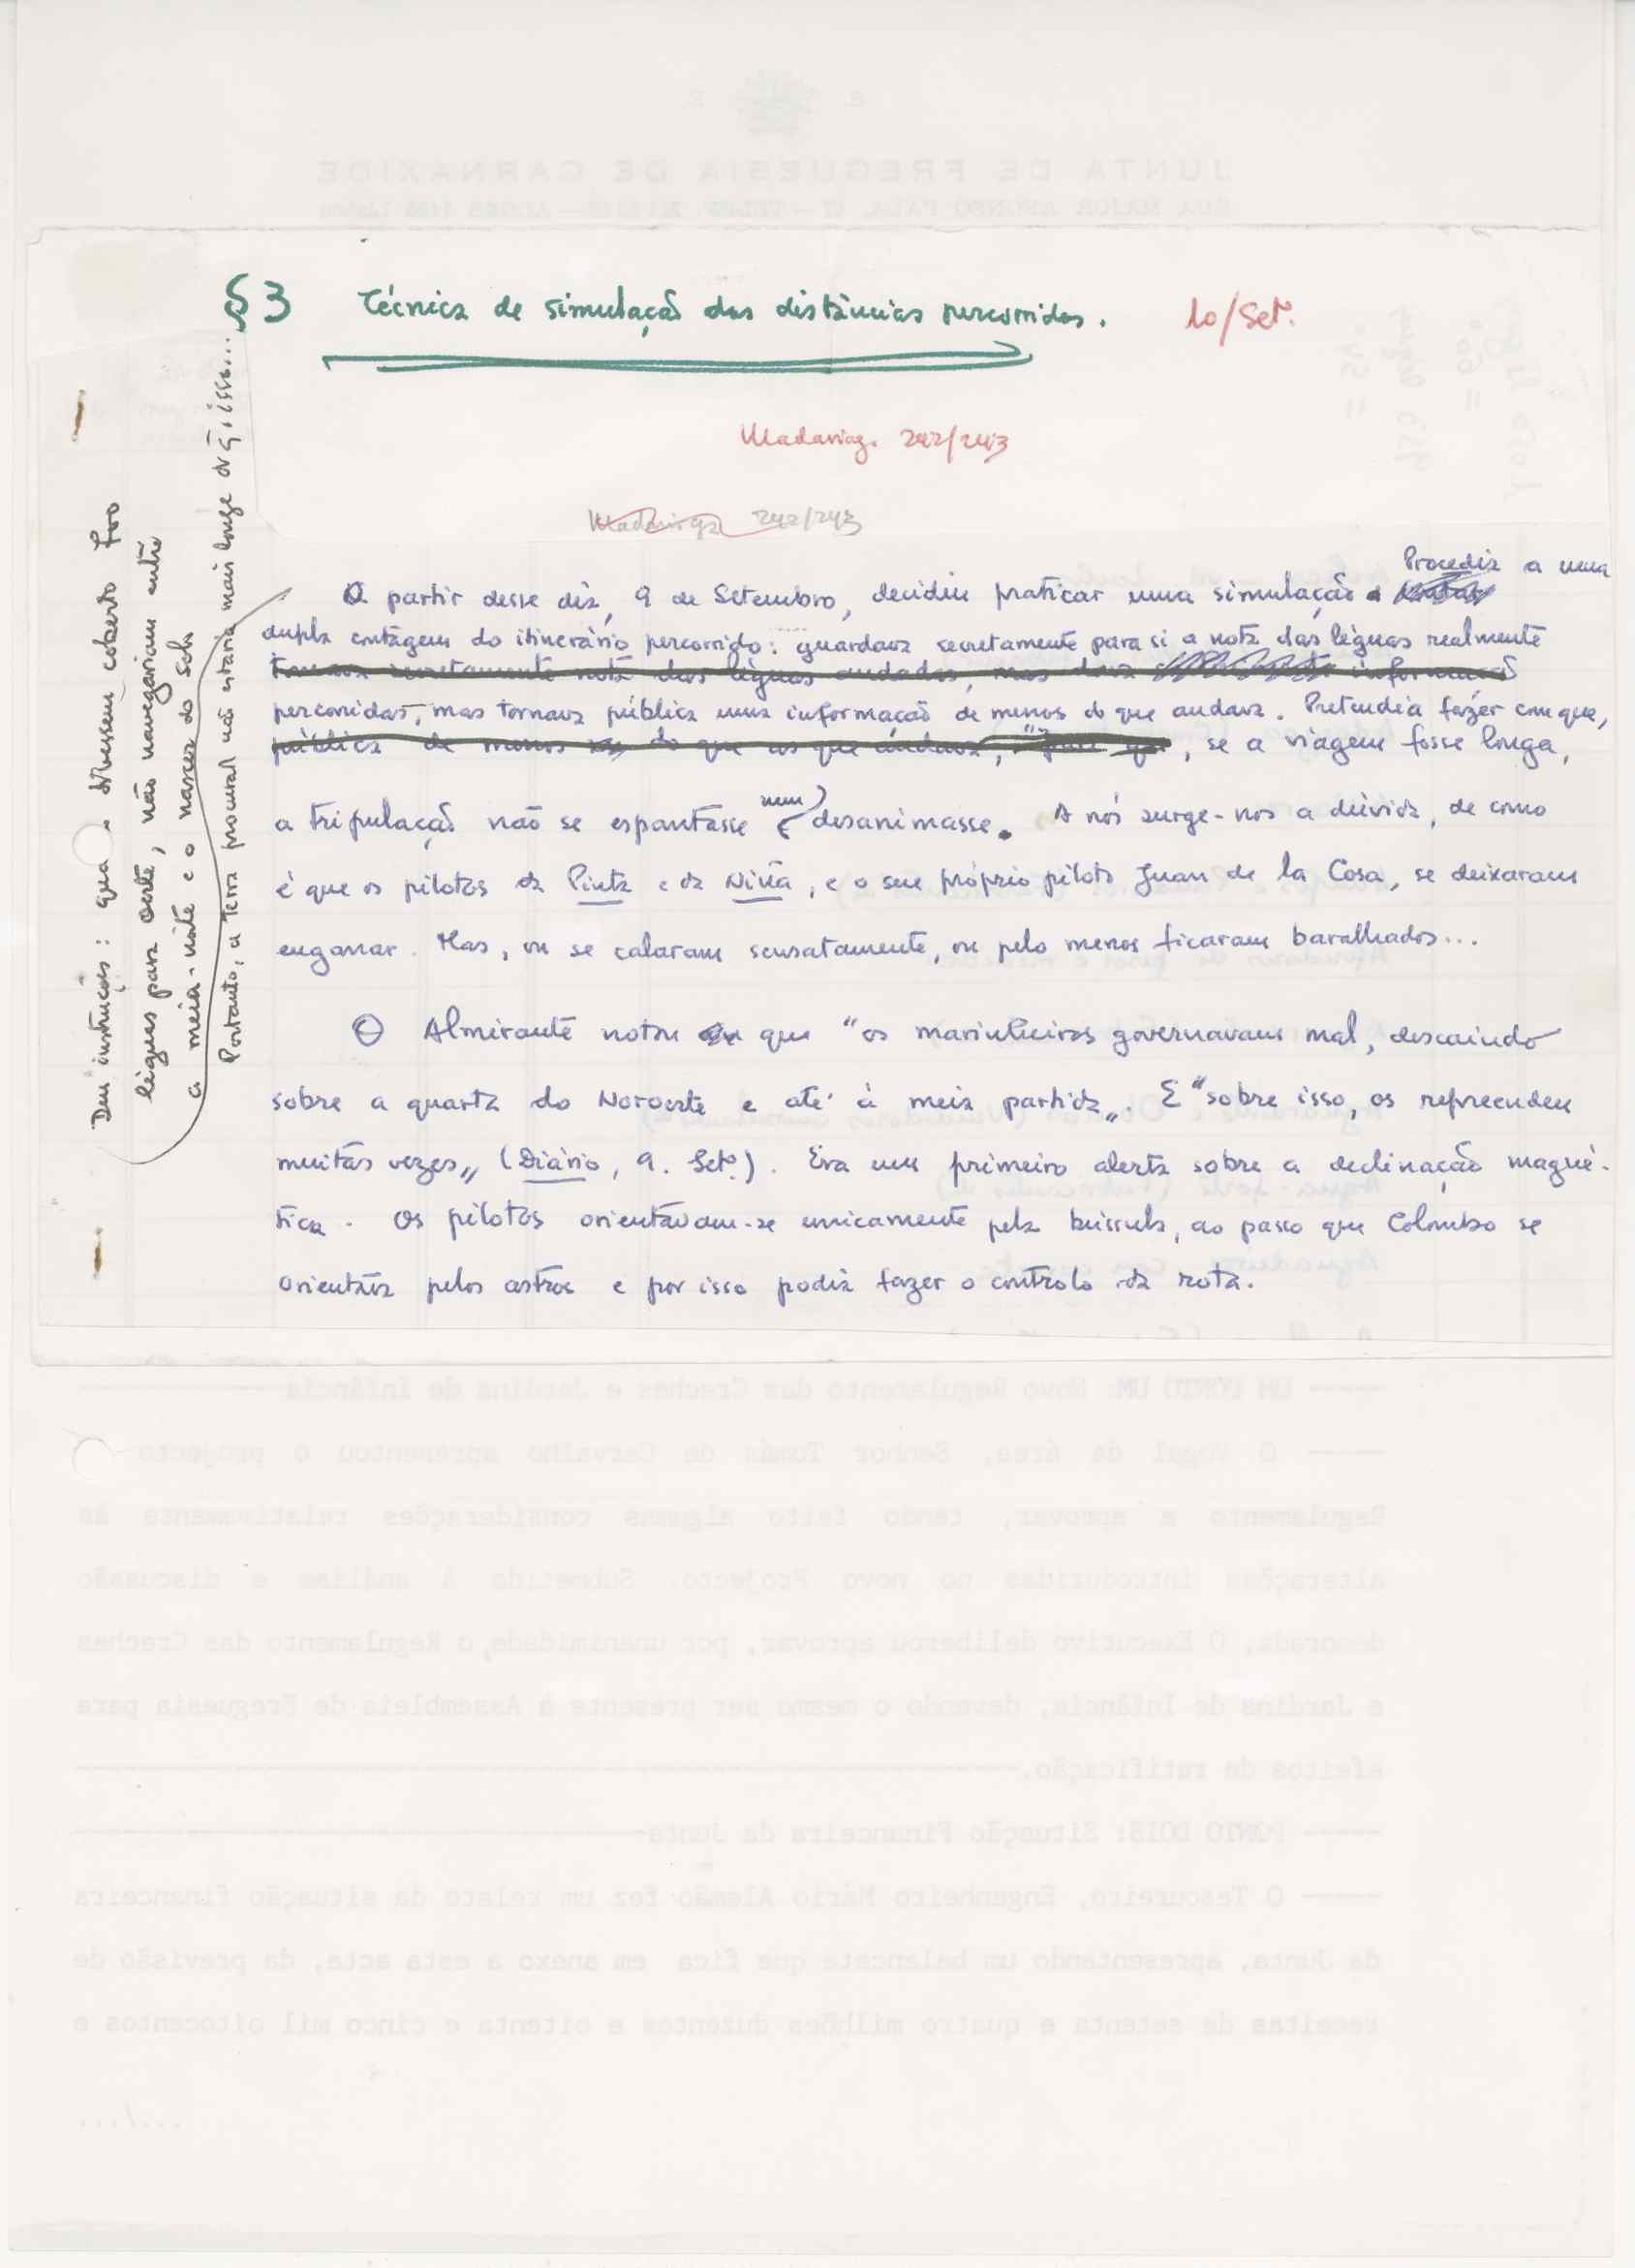 §3 Técnica de simulação das distâncias percorridas. 10/Set.
Madariag. 242/243
Madariaga 242/243
Procedia a uma
A partir desse dia, 9 de Setembro, decidiu praticar uma simulação
dupla contagem do itinerário percorrido: guardava secretamente para si a nota das léguas realmente
tomava secretamente nota das léguas andadas, mas dava informação
percorridas, mas tornava pública uma informação de menos do que andava. Pretendia fazer com que,
pública de menos do que as que andava, para que, se a viagem fosse longa,
a tripulação não se espantasse nem desanimasse. A nós surge-nos a dúvida, de como
é que os pilotos da Pinta e da Niña, e o seu próprio piloto Juan de la Cosa, se deixaram
enganar. Mas, ou se calaram sensatamente, ou pelo menos ficaram baralhados...
O Almirante notou que "os marinheiros governavam mal, descaindo
sobre a quarta do Noroeste e até à meia partida". E "sobre isso, os repreendeu
muitas vezes" (Diário, 9. Setº.). Era um primeiro alerta sobre a declinação magné-
tica. Os pilotos orientavam-se unicamente pela bússula, ao passo que Colombo se
orientava pelos astros e por isso podia fazer o controlo da rota.
Deu instruções: que houvessem coberto 700
léguas para oeste, não navegariam entre
a meia-noite e o nascer do sol.
Portanto, a Terra procurada não estaria mais longe do q̄ isso...
JUNTA DE FREGUESIA DE CARNAXIDE
----- UM PONTO UM: Novo Regulamento das Creches e Jardins de Infância
----- O Vogal da área, Senhor Tomás de Carvalho apresentou o projecto
Regulamento a aprovar, tendo feito algumas considerações relativamente às
alterações introduzidas no novo Projecto. Submetido à análise e discussão
demorada, O Executivo deliberou aprovar, por unanimidade, o Regulamento das Creches
e Jardins de Infância, devendo o mesmo ser presente à Assembleia de Freguesia para
efeitos de ratificação.
----- PONTO DOIS: Situação Financeira da Junta
----- O Tesoureiro, Engenheiro Mário Alemão fez um relato da situação financeira
da Junta, apresentando um balancete que fica em anexo a esta acta, da previsão de
receitas de setenta e quatro milhões duzentos e oitenta e cinco mil oitocentos e
.../...